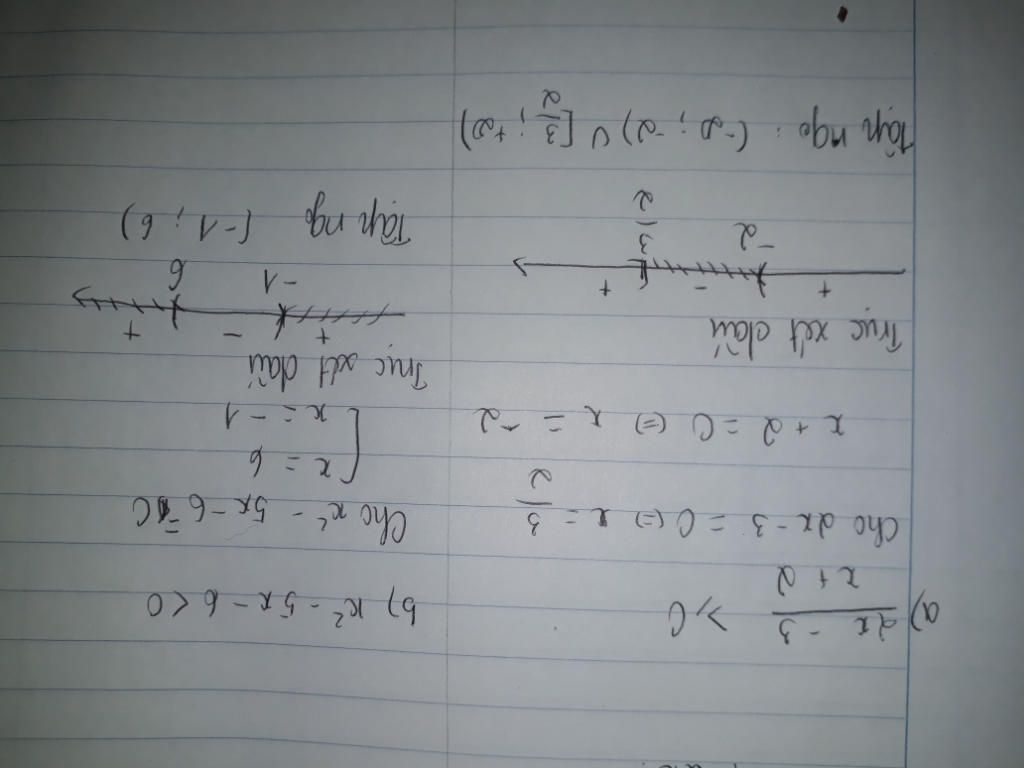 a) (2x - 3)/(x + 2) ≥ 0
Cho 2x - 3 = 0 (=) x = 3/2
x + 2 = 0 (=) x = -2
Trục xét dấu
+ - +
-2 3/2
Tập ngo : (-∞ ; -2) ∪ [3/2 ; +∞)
b) x² - 5x - 6 < 0
Cho x² - 5x - 6 = 0
[ x = 6
x = -1
Trục xét dấu
+ - +
-1 6
Tập ngo (-1 ; 6)